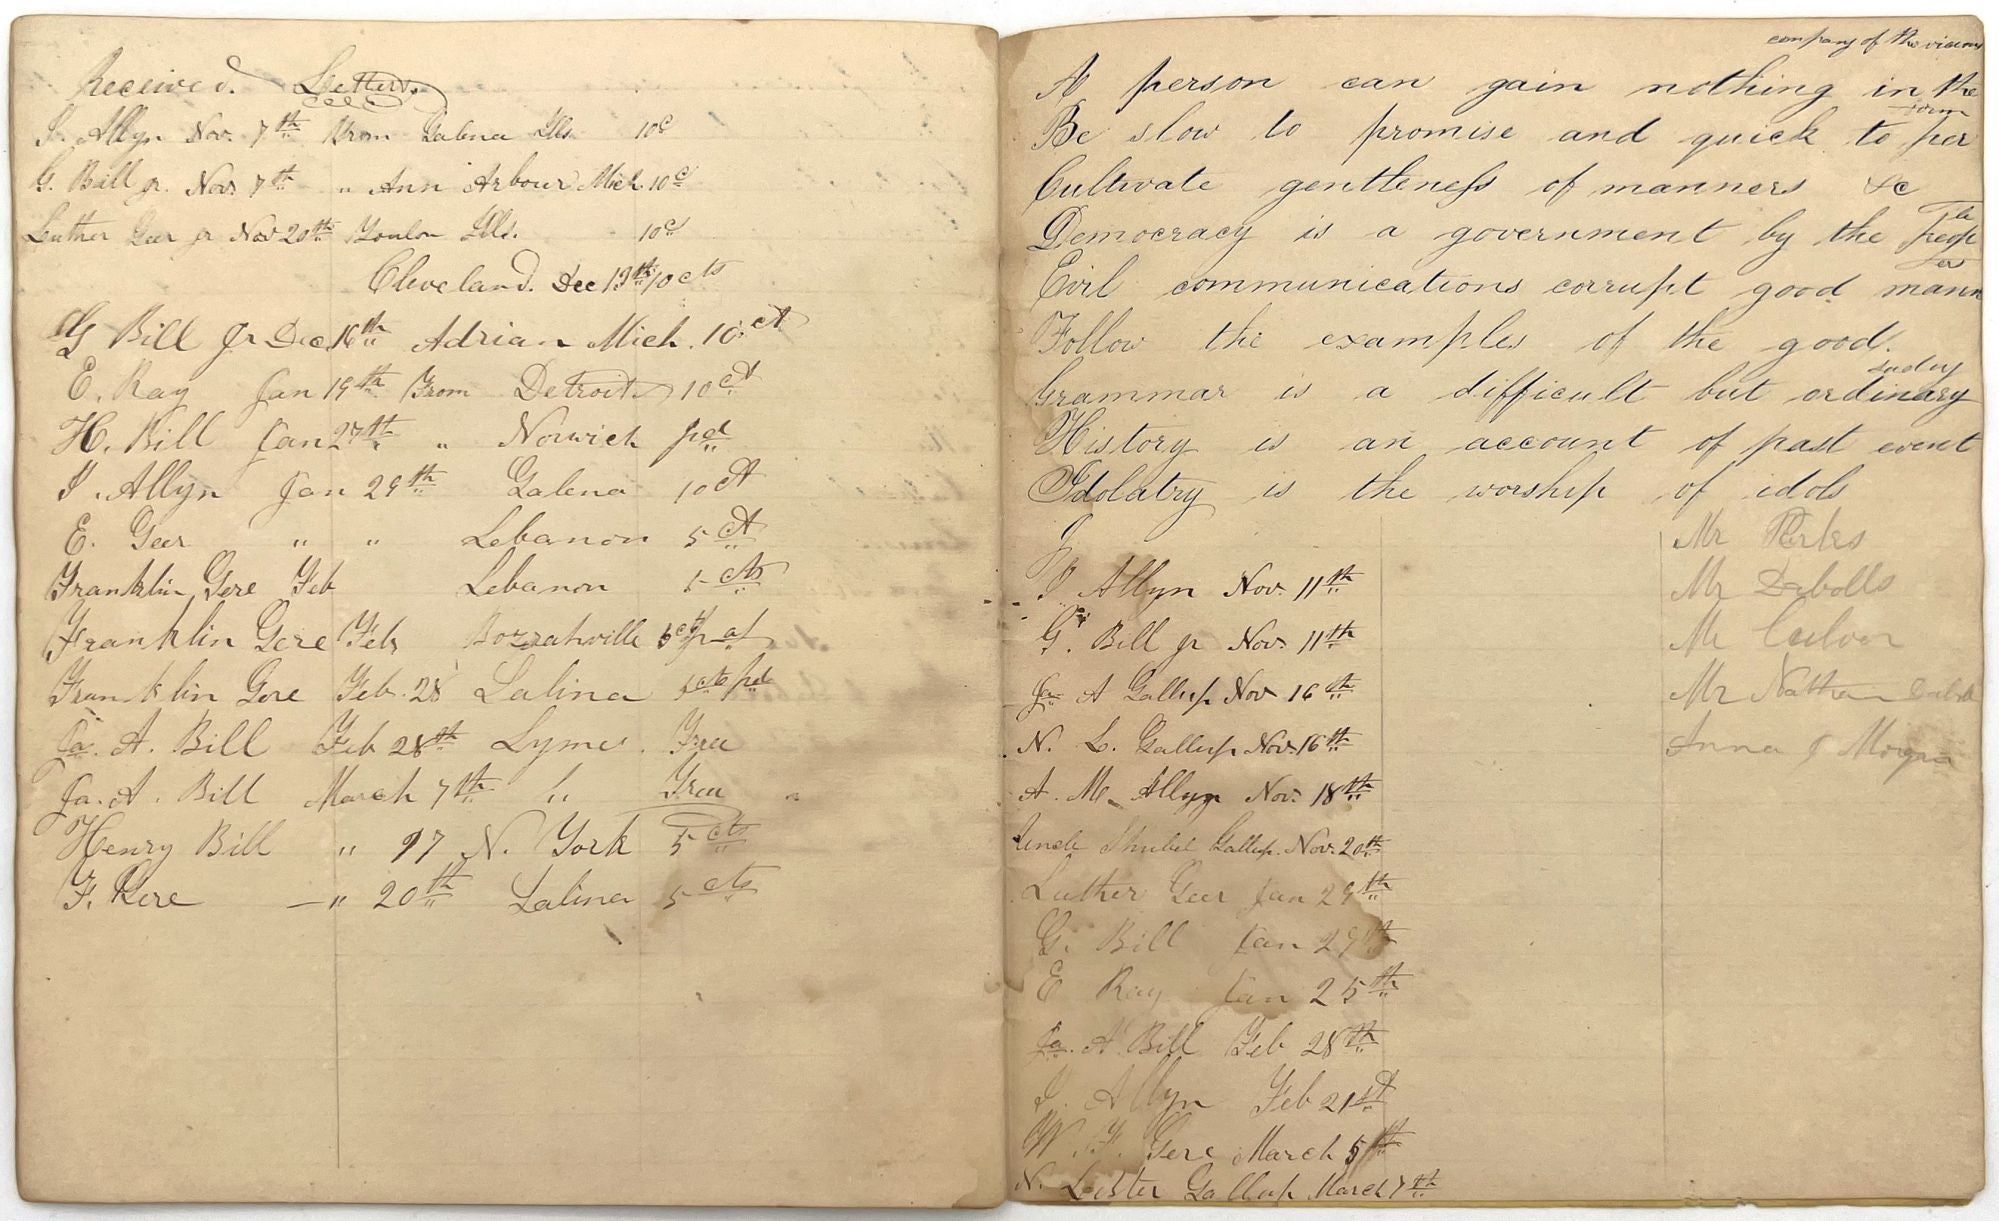 Received. Letters.
I. Allyn Nov. 7th From Galena Ills 10c
G. Bill Jr. Nov. 7th " Ann Arbour Mich. 10c
Luther Geer Jr Nov 20th Toulon Ills. 10c
Cleveland. Dec 13th 10 cts
G Bill Jr Dec. 16th Adrian Mich. 10 ct
E. Ray Jan 19th From Detroit 10 ct
H. Bill Jan 27th " Norwich pd
I. Allyn Jan 29th Galena 10 ct
E. Geer " " Lebanon 5 ct
Franklin Gere Feb Lebanon 5 cts
Franklin Gere Feb Bozrahville 5 cts pd
Franklin Gere Feb. 28 Salina 5 cts pd
Ja. A. Bill Feb 28th Lyme. Free
Ja. A. Bill March 7th " Free
Henry Bill " 17 N. York 5 cts
F. Gere — " 20th Salina 5 cts
company of the vicious
A person can gain nothing in the
Be slow to promise and quick to perform
Cultivate gentleness of manners &c
Democracy is a government by the people
Evil communications corrupt good manners
Follow the examples of the good.
Grammar is a difficult but ordinary study
History is an account of past event
Idolatry is the worship of idols
J
I Allyn Nov. 11th
G. Bill Jr Nov. 11th
Ja A Gallup Nov 16th
N. L. Gallup Nov. 16th
A. M. Allyn Nov. 18th
Uncle Shubel Gallup. Nov. 20th
Luther Geer Jan 29th
G. Bill Jan 29th
E Ray Jan 25th
Ja. A Bill Feb 28th
I. Allyn Feb 21st
W. F. Gere March 5th
N. Lester Gallup March 7th
Mr
Mr Dabolls
Mr Culver
Mr Nathan
Anna J Morgan